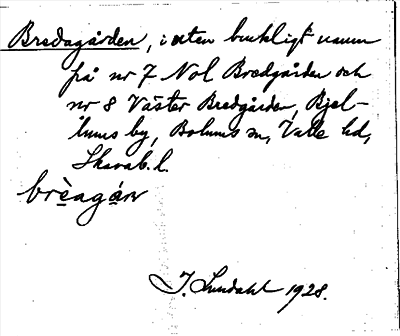 Bredagården, i orten brukligt namn
på nr 7 Nol Bredgården och
nr 8 Väster Bredgården, Bjel-
lums by, Bolums sn, Valle hd,
Skarab. l.
brèagán
I. Lundahl 1928.